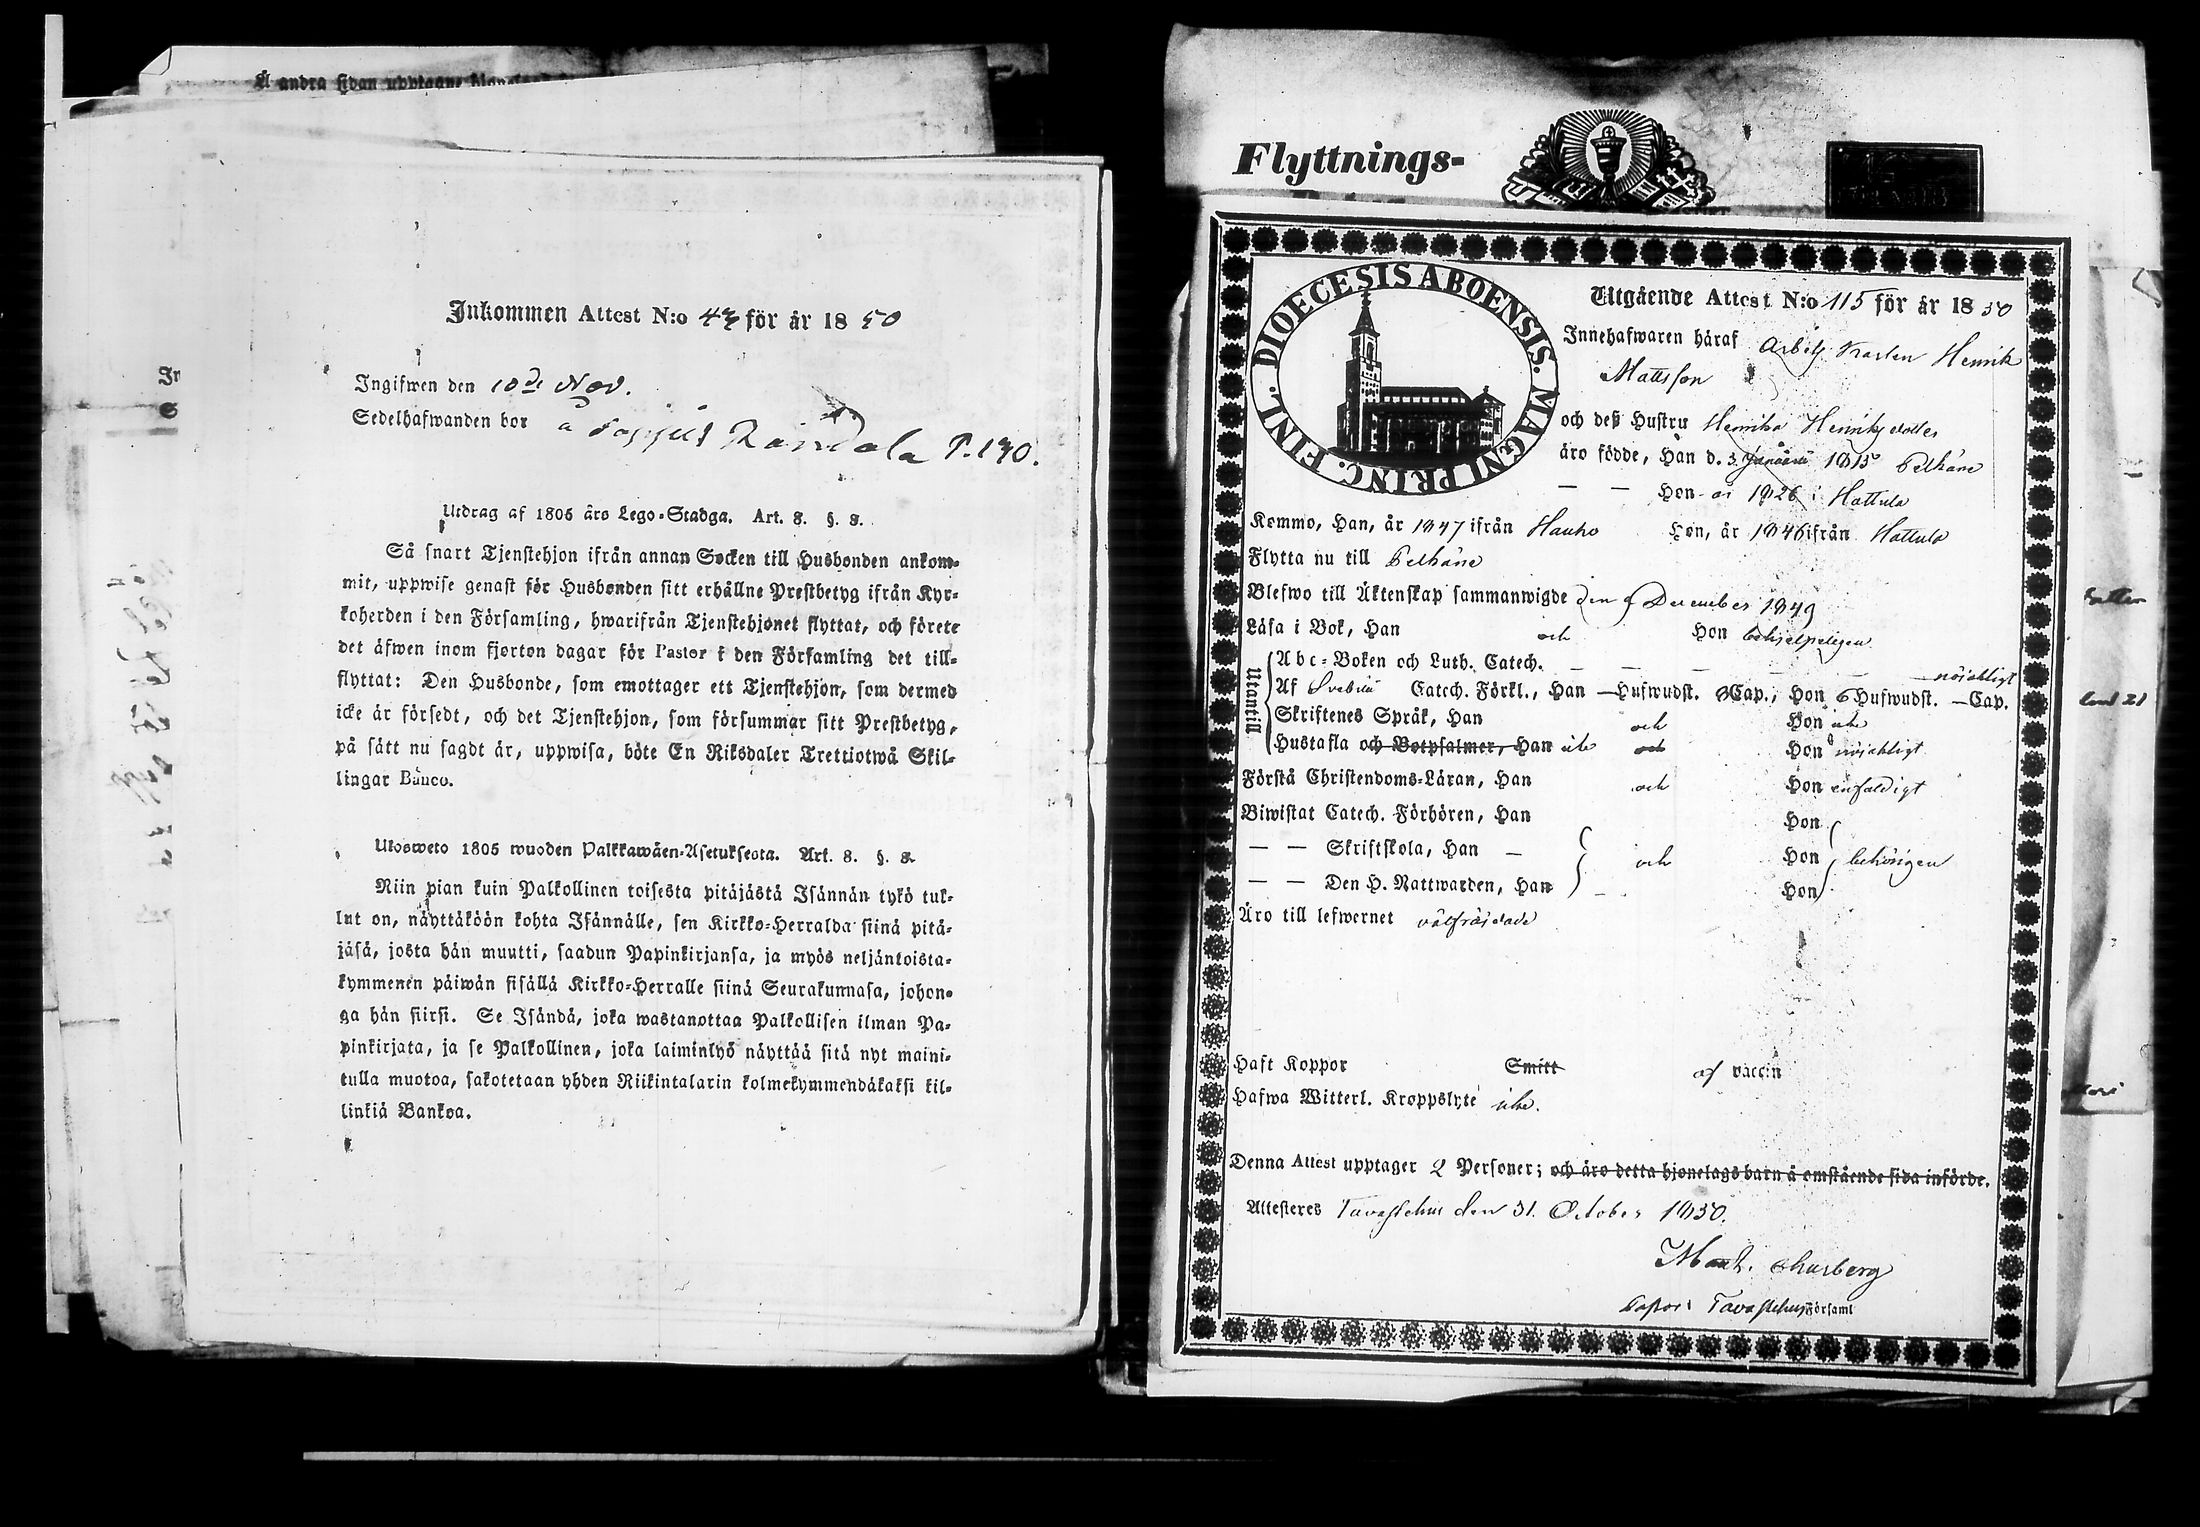 Å andra sidan upptagne
Inkommen Attest N:o 43 för år 1850
Ingifwen den 10de Nov.
Sedelhafwanden bor å P. 190.
Utdrag af 1805 års Lego-Stadga. Art. 8. §. 8.
Så snart Tjenstehjon ifrån annan Socken till Husbonden ankom-
mit, uppwise genast för Husbonden sitt erhållne Prestbetyg ifrån Kyr-
koherden i den Församling, hwarifrån Tjenstehjonet flyttat, och förete
det äfwen inom fjorton dagar för Pastor i den Församling det till-
flyttat: Den Husbonde, som emottager ett Tjenstehjon, som dermed
icke är försedt, och det Tjenstehjon, som försummar sitt Prestbetyg,
på sätt nu sagdt är, uppwisa, böte En Riksdaler Trettiotwå Skil-
lingar Banco.
Ulosweto 1805 wuoden Palkkawäen-Asetuksesta. Art. 8. §. 8.
Niin pian kuin Palkollinen toisesta pitäjästä Isännän tykö tul-
lut on, näyttäköön kohta Isännälle, sen Kirkko-Herralda siinä pitä-
jäsä, josta hän muutti, saadun Papinkirjansa, ja myös neljäntoista-
kymmenen päiwän sisällä Kirkko-Herralle siinä Seurakunnasa, johon-
ga hän siirsi. Se Isändä, joka wastanottaa Palkollisen ilman Pa-
pinkirjata, ja se Palkollinen, joka laiminlyö näyttää sitä nyt maini-
tulla muotoa, sakotetaan yhden Riikintalarin kolmekymmendäkaksi kil-
linkiä Bankoa.
Flyttnings-
DIOECESIS ABOENSIS. MAGNI PRINC. FINL.
Utgående Attest N:o 115 för år 1850
Innehafwaren häraf Arbets Karlen Henrik
Mattsson
och deß Hustru Henrika Henriksdotter
äro födde, Han d. 3 Januarii 1815 Pelkäne
— — Hon år 1826 i Hattula
Komme, Han, år 1847 ifrån Hauho Hon, år 1846 ifrån Hattula
Flytta nu till Pelkäne
Blefwo till Äktenskap sammanwigde den 9 December 1849
Läsa i Bok, Han och Hon behjelpeligen
Utantill
Abc-Boken och Luth. Catech. — — — nöjaktligt
Af Svebilii Catech. Förkl., Han — Hufwudst. 8 Cap., Hon 6 Hufwudst. — Cap.
Skriftenes Språk, Han och Hon icke
Hustafla och Botpsalmer, Han icke och Hon nöjaktligt
Förstå Christendoms-Läran, Han och Hon enfaldigt
Biwistat Catech. Förhören, Han Hon
— — Skriftskola, Han — och Hon behörigen
— — Den H. Nattwarden, Han — Hon
Äro till lefwernet välfräjdade
Haft Koppor Smitt af vaccin
Hafwa Witterl. Kroppslyte icke.
Denna Attest upptager 2 Personer; och äro detta hjonelags barn å omstående sida införde.
Attesteres Tavastehus den 31. October 1850.
Churberg
Pastor i Tavastehus Församl